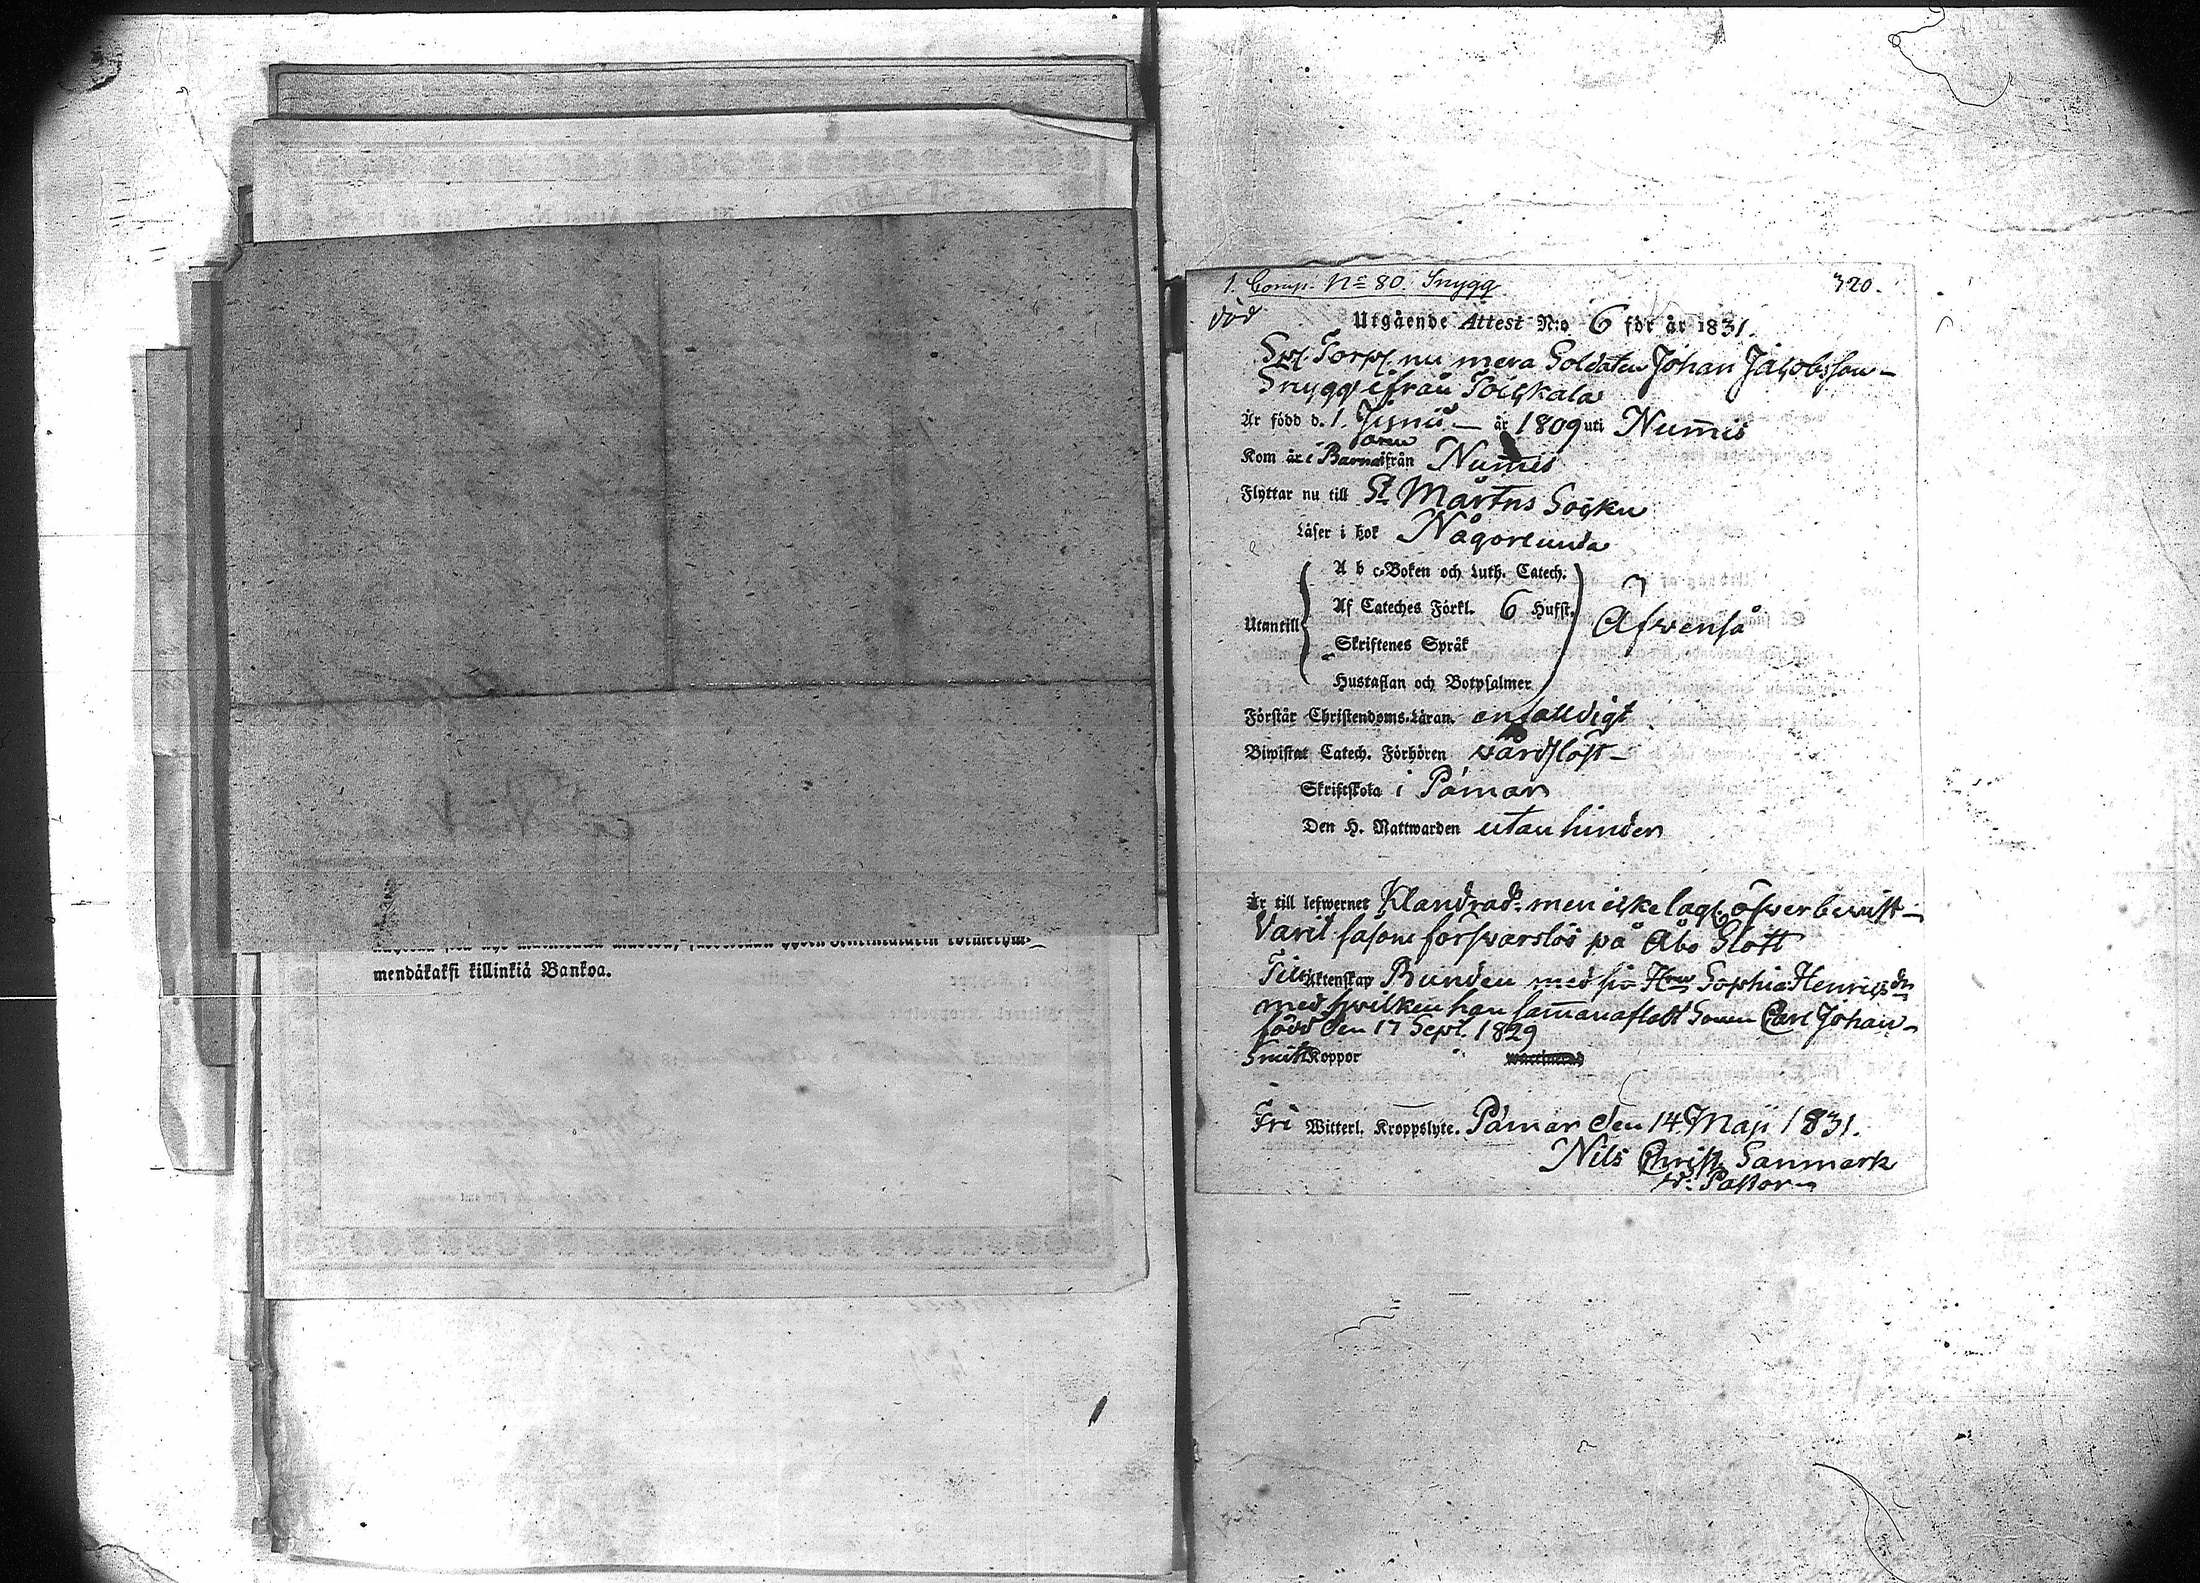 mendåkaksi killinkiä Bankoa.
1. Comp. No 80. Snygg
320.
död
Utgående Attest N:o 6 för år 1831.
Torp. nu mera Soldaten Johan Jacobsson
Snygg ifrån Toiskala
Är född d. 1. Junii år 1809 uti Nummis
Kom år i Barna ifrån Nummis
aren
Flyttar nu till St Mårtns Socken
Läser i bok Någorlunda
A b c-Boken och Luth. Catech.
Af Cateches Förkl. 6 Hufst.
Utantill
Äfvenså
Skriftenes Språk
Hustaflan och Botpsalmer
Förstår Christendoms-Läran. enfalldigt
Biwistat Catech. Förhören vårdslöst
Skriftskola i Pämar
Den H. Nattwarden utan hinder
Är till lefwernet Klandrad: men icke lagl. öfverbevist
Varit såsom försvarslös på Åbo Slott
Till Äktenskap Bunden med sin Hru Sophia Henricsdr
med hvilken han sammanafladt Sonen Carl Johan
född den 17 Sept. 1829
Koppor
Fri Witterl. Kroppslyte. Pämar den 14 Maji 1831.
Nils Christ. Sanmark
v: Pastor